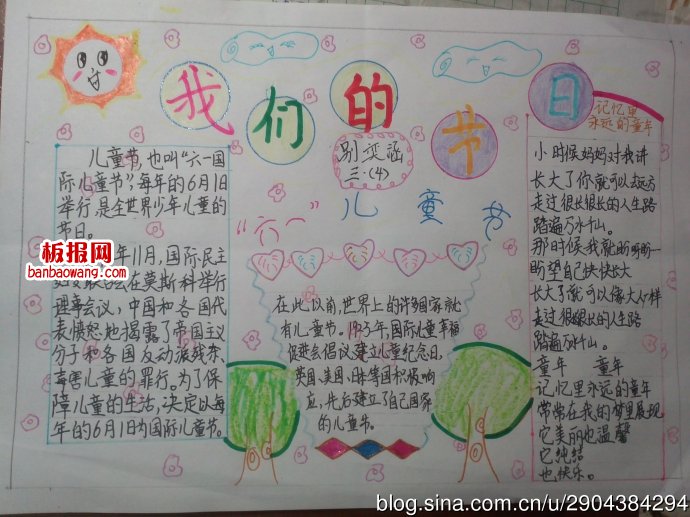 我们的节日
别奕涵
三.(4)
"六一"儿童节
儿童节,也叫"六一国
际儿童节",每年的6月1日
举行,是全世界少年儿童的
节日。
年11月,国际民主
在莫斯科举行
理事会议,中国和各国代
表愤怒地揭露了帝国主义
分子和各国反动派残杀、
毒害儿童的罪行。为了保
障儿童的生活,决定以每
年的6月1日为国际儿童节。
在此以前,世界上的许多国家就
有儿童节。1925年,国际儿童幸福
促进会倡议建立儿童纪念日,
英国、美国、日本等国积极响
应,先后建立了自己国家
的儿童节。
记忆里
永远的童年
小时候妈妈对我讲
长大了你就可以去远方
走过很长很长的人生路
踏遍万水千山。
那时候我就盼呀盼
盼望自己快快长大
长大了就可以像大人一样
走过很长很长的人生路
踏遍万水千山。
童年 童年
记忆里永远的童年
常常在我的梦里展现
它美丽也温馨
它纯结
也快乐。
板报网
banbaowang.com
blog.sina.com.cn/u/2904384294